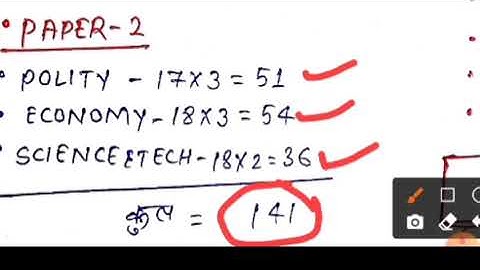 • PAPER-2
• POLITY - 17×3 = 51
• ECONOMY - 18×3 = 54
• SCIENCE & TECH - 18×2 = 36
कुल = 141